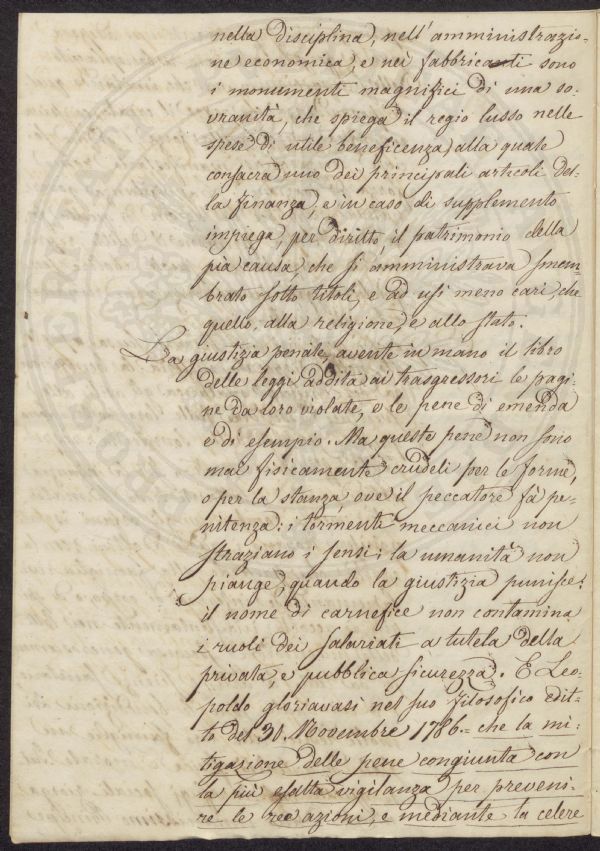 nella disciplina, nell'amministrazio-
ne economica, e nei fabbricanti sono
i monumenti magnifici di una so-
vranità, che spiega il regio lusso nelle
spese di utile beneficenza, alla quale
consacra uno dei principali articoli del-
la finanza, e in caso di supplemento
impiega, per diritto, il patrimonio della
pia causa, che si amministrava smem-
brato sotto titoli, e ad usi meno cari, che
quello, alla religione, e allo stato.
La giustizia penale, avente in mano il libro
delle leggi addita ai trasgressori le pagi-
ne da loro violate, e le pene di emenda
e di esempio. Ma queste pene non sono
mai fisicamente crudeli per le forme,
o per la stanza, ove il peccatore fà pe-
nitenza: i tormenti meccanici non
straziano i sensi: la umanità non
piange, quando la giustizia punisce:
il nome di carnefice non contamina
i ruoli dei salariati a tutela della
privata, e pubblica sicurezza. E Leo-
poldo gloriavasi nel suo filosofico edit-
to del 30. Novembre 1786.= che la mi-
tigasione delle pene congiunta con
la più esatta vigilanza per preveni-
re le ree azioni, e mediante la celere